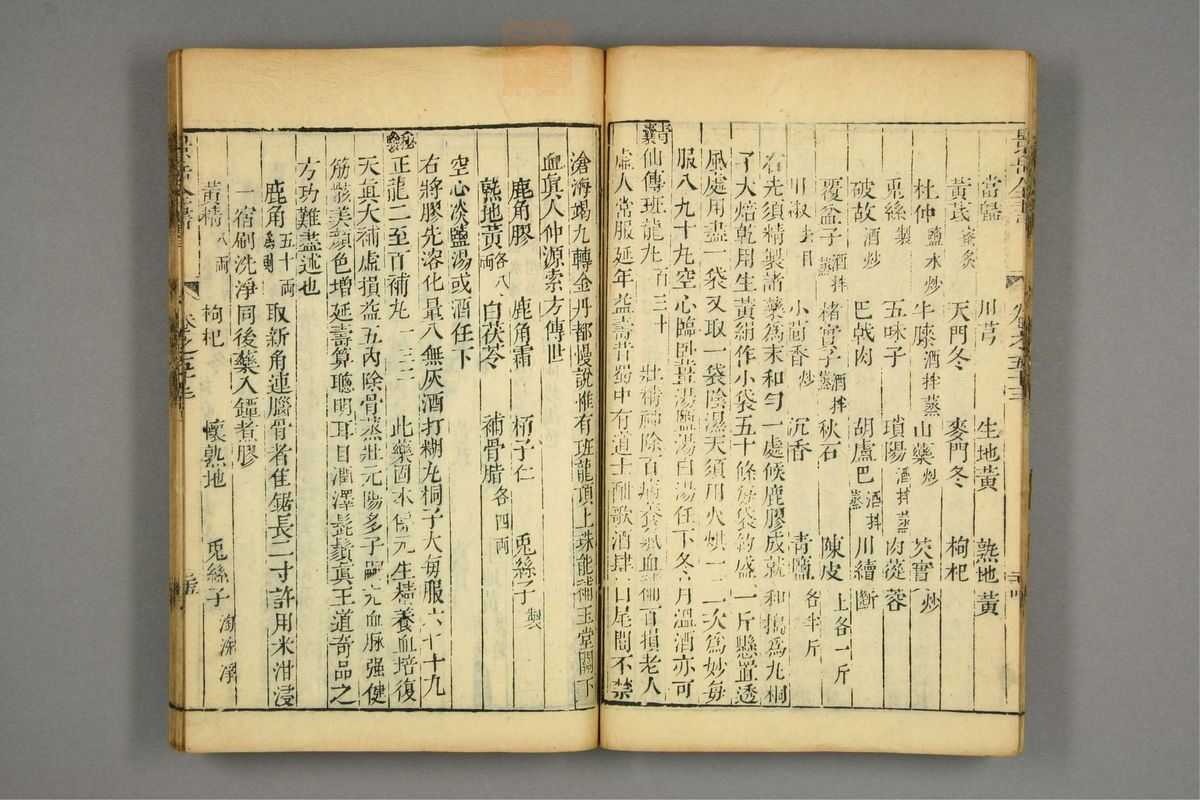 當歸　川芎　生地黃　熟地黃
黃芪蜜炙　天門冬　麥門冬　枸杞
杜仲鹽水炒　牛膝酒拌蒸　山藥炒　芡實炒
兎絲製　五味子　瑣陽酒拌蒸　肉蓯蓉
破故酒炒　巴戟肉　胡盧巴酒拌蒸　川續斷
覆盆子酒拌蒸　楮實子酒拌蒸　秋石　陳皮上各一斤
川椒去目　小茴香炒　沉香　青鹽各半斤
右先須精製諸藥爲末和勻一處候鹿膠成就和搗爲丸桐
子大焙乾用生黃絹作小袋五十條每袋約盛一斤懸置透
風處用盡一袋又取一袋陰濕天須用火烘一二次爲妙每
服八九十九空心臨臥薑湯鹽湯白湯任下冬月溫酒亦可
青囊仙傳班龍丸百三十　壯精神除百病養氣血補百損老人
虛人常服延年益壽昔蜀中有道士酣歌酒肆曰尾閭不禁
滄海竭九轉金丹都慢說惟有班龍頂上珠能補玉堂關下
血眞人仲源索方傳世
鹿角膠　鹿角霜　栢子仁　兎絲子製
熟地黃各八兩　白茯苓　補骨脂各四兩
空心淡鹽湯或酒任下
右將膠先溶化量入無灰酒打糊丸桐子大每服六七十九
秘驗正龍二至百補丸一三二　此藥固本保元生精養血培復
天眞大補虛損益五內除骨蒸壯元陽多子嗣充血脉强健
筋骸美顏色增延壽算聰明耳目潤澤髭鬚眞王道奇品之
方功難盡述也
鹿角五十兩爲則　取新角連腦骨者隹鋸長二寸許用米泔浸
一宿刷洗淨同後藥入罈煮膠
黃精八兩　枸杞　懷熟地　兎絲子淘洗淨